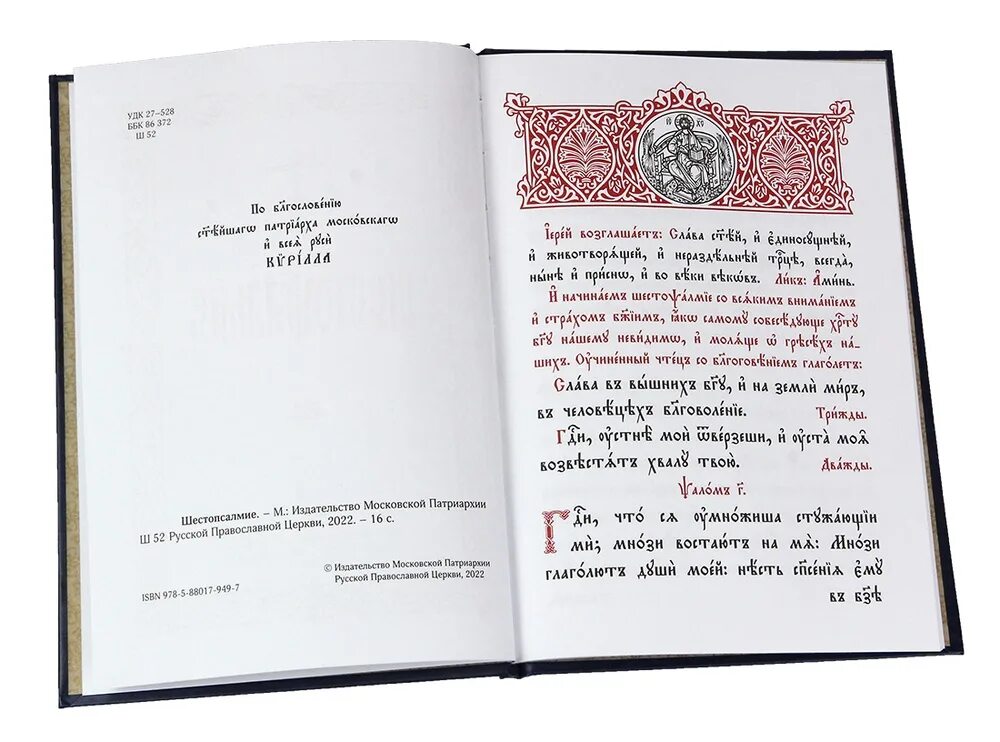 УДК 27–528
ББК 86 372
Ш 52
По бл҃гослове́нїю
ст҃ѣ́йшагѡ патрїа́рха моско́вскагѡ
и҆ всеѧ̀ рꙋсѝ
КѴРІ́ЛЛА
Шестопсалмие. – М.: Издательство Московской Патриархии
Ш 52 Русской Православной Церкви, 2022. – 16 с.
© Издательство Московской Патриархии
Русской Православной Церкви, 2022
ISBN 978-5-88017-949-7
І҆ере́й возглаша́етъ: Сла́ва ст҃ѣ́й, и҆ є҆диносꙋ́щнѣй,
и҆ животворѧ́щей, и҆ нераздѣ́льнѣй трⷪ҇цѣ, всегда̀,
ны́нѣ и҆ при́снѡ, и҆ во вѣ́ки вѣкѡ́въ. Ли́къ: А҆ми́нь.
И҆ начина́емъ шестоѱа́лмїе со всѧ́кимъ внима́нїемъ
и҆ стра́хомъ бж҃їимъ, ꙗ҆́кѡ самомꙋ̀ собесѣ́дꙋюще хрⷭ҇тꙋ̀
бг҃ꙋ на́шемꙋ неви́димѡ, и҆ молѧ́ще ѡ҆ грѣсѣ́хъ на́-
шихъ. Оу҆чине́нный чте́цъ со бл҃гоговѣ́нїемъ глаго́летъ:
Сла́ва въ вы́шнихъ бг҃ꙋ, и҆ на землѝ ми́ръ,
въ человѣ́цѣхъ бл҃говоле́нїе. Три́жды.
Гдⷭ҇и, ᲂу҆стнѣ̀ моѝ ѿве́рзеши, и҆ ᲂу҆ста̀ моѧ̑
возвѣстѧ́тъ хвалꙋ̀ твою̀. Два́жды.
Ѱало́мъ г҃.
Гдⷭ҇и, что́ сѧ ᲂу҆мно́жиша стꙋжа́ющїи
мѝ; мно́зи востаю́тъ на мѧ̀: Мно́зи
глаго́лютъ дꙋшѝ мое́й: нѣ́сть сп҃се́нїѧ є҆мꙋ̀
въ бз҃ѣ